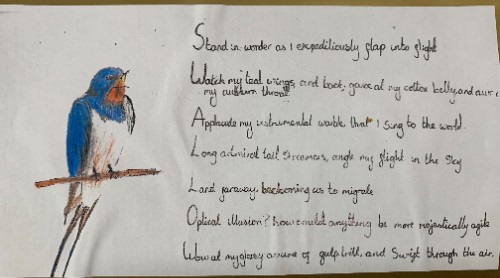 Stand in wonder as I expeditiously flap into flight
Watch my teal wings, and back, gaze at my cotton belly, and
my auburn throat
Applaude my instrumental warble that I sing to the world.
Long admired tail streamers, angle my flight in the sky
Land faraway, beckoning us to migrate
Optical illusion? how could anything be more majestically agile
Wow at my glossy of gulp trill, and Swift through the air,